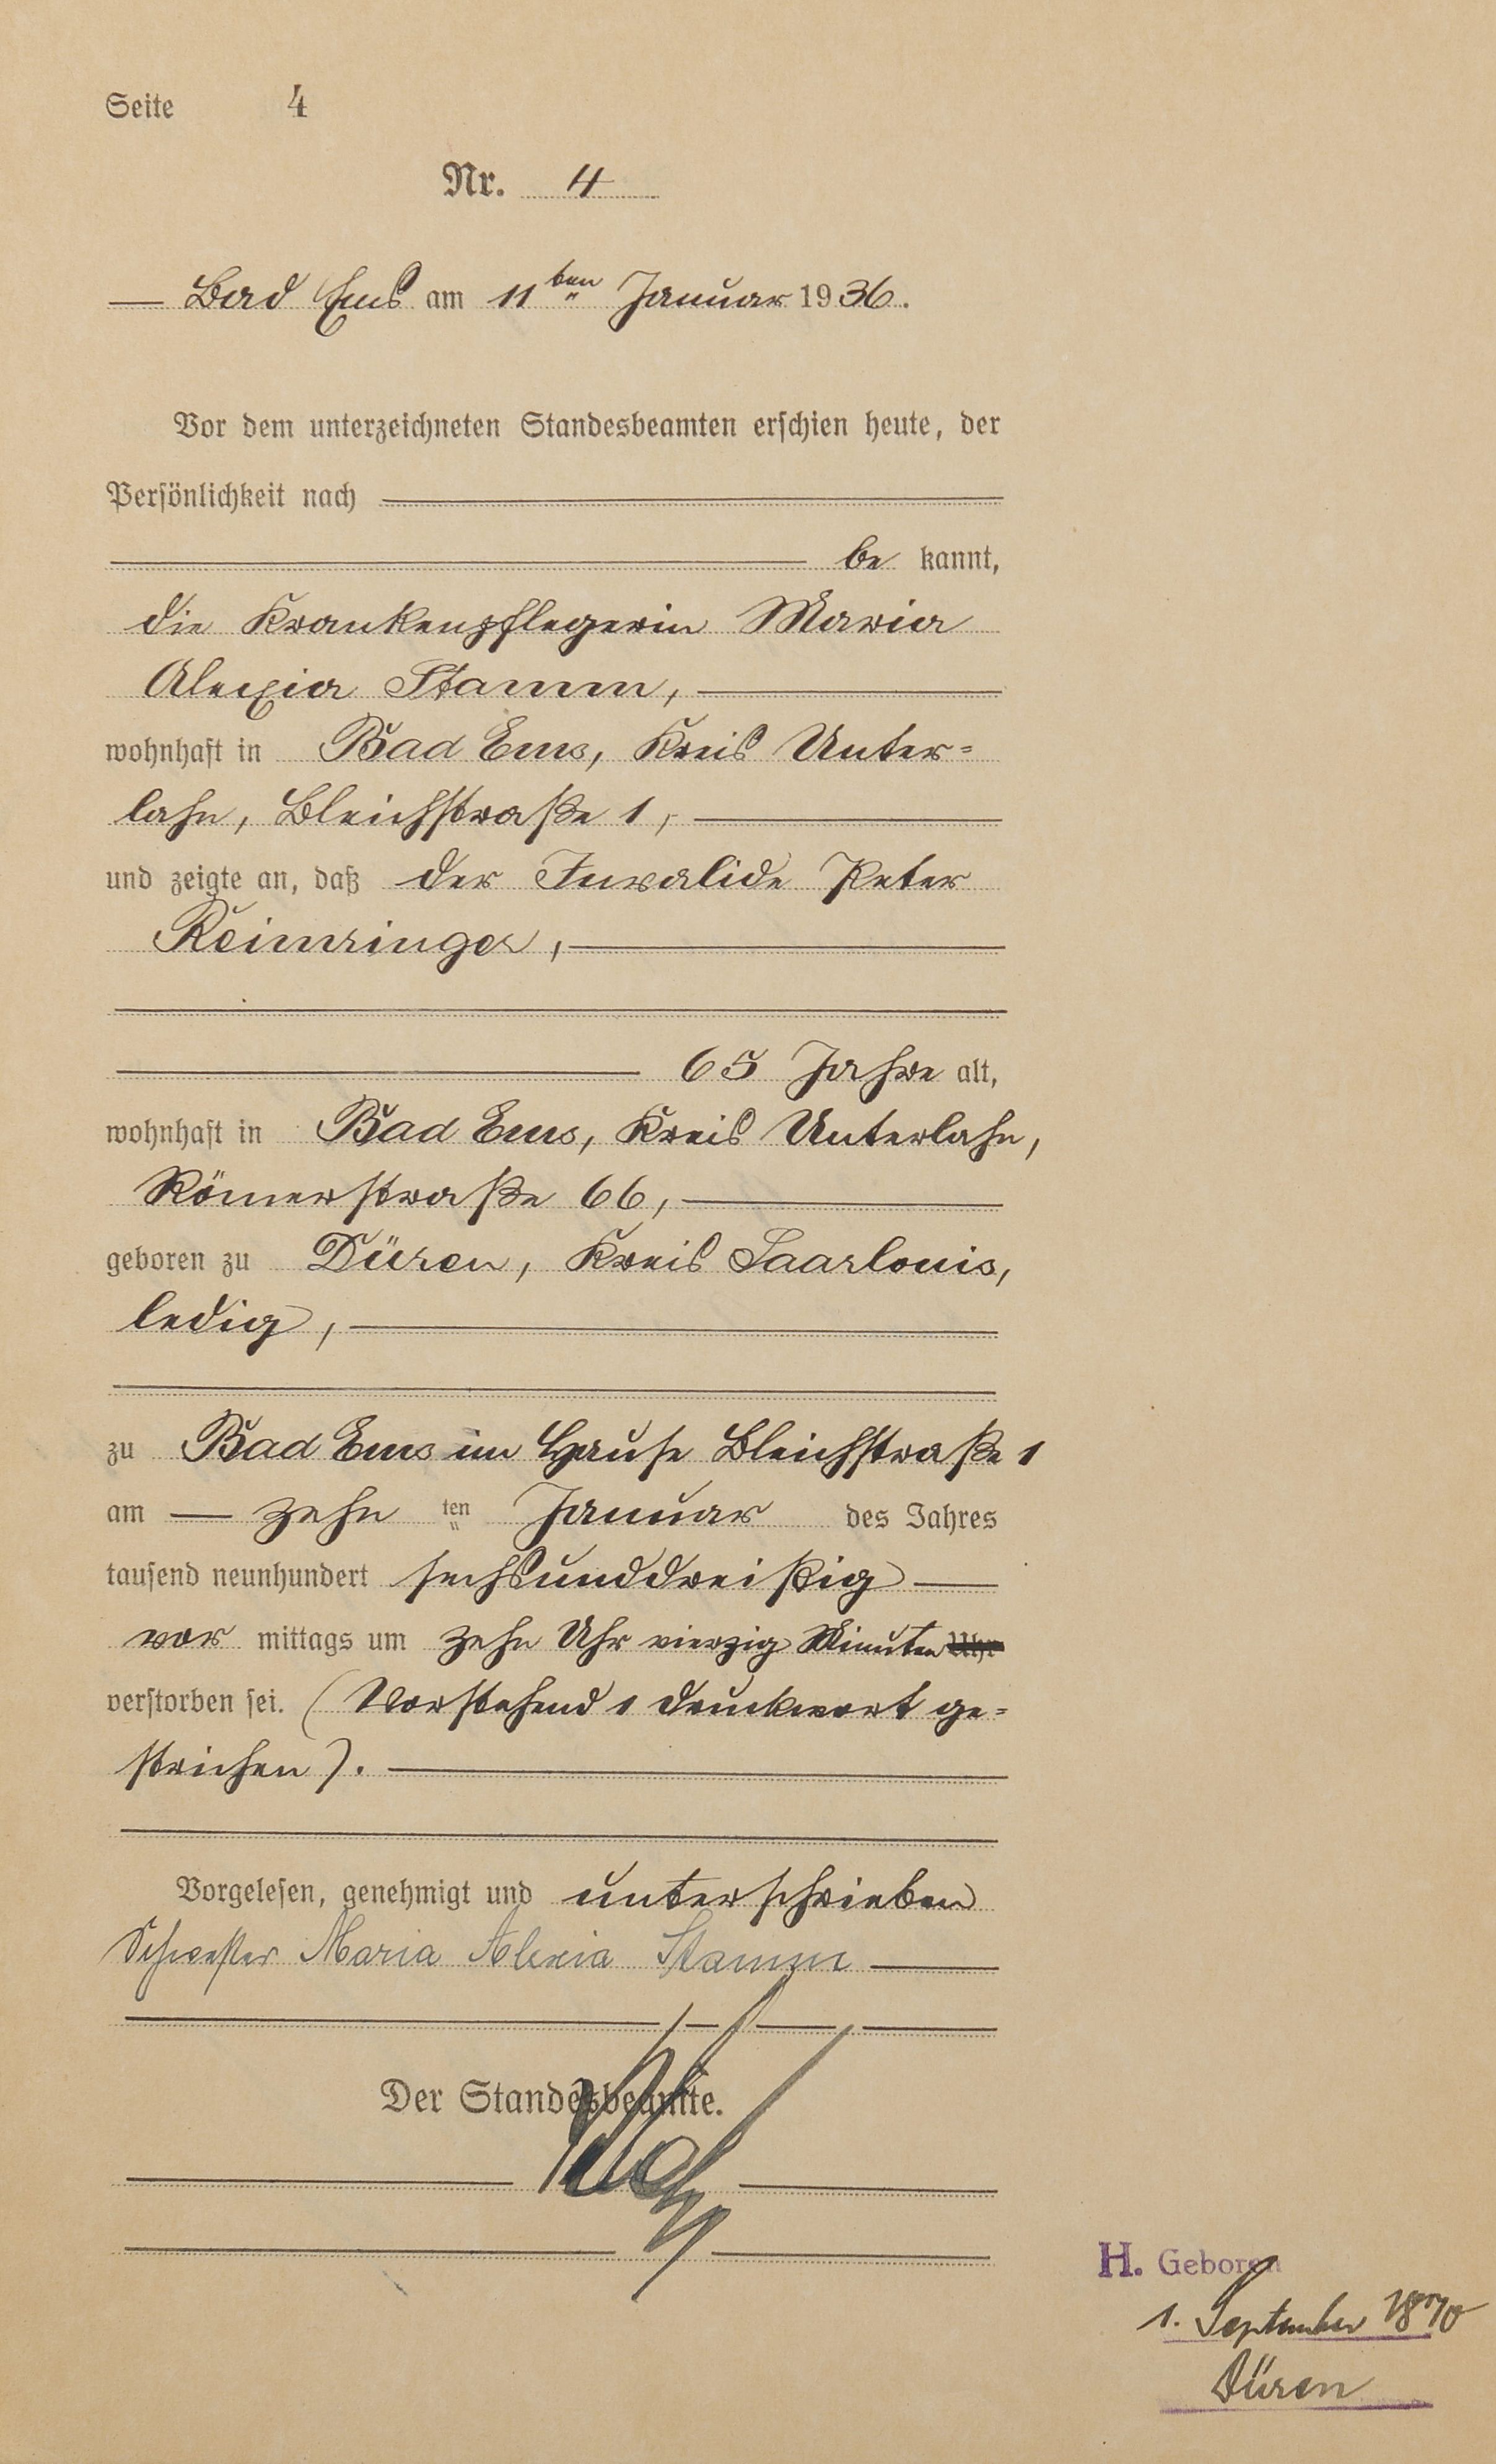 Seite 4
Nr. 4
— Bad Ems am 11ten Januar 1936.
Vor dem unterzeichneten Standesbeamten erschien heute, der
Persönlichkeit nach
be kannt,
die Krankenpflegerin Maria
Alexia Stamm,
wohnhaft in Bad Ems, Kreis Unter=
lahn, Bleichstraße 1,
und zeigte an, daß der Invalide Peter
Reimringer,
65 Jahre alt,
wohnhaft in Bad Ems, Kreis Unterlahn,
Römerstraße 66,
geboren zu Düren, Kreis Saarlouis,
ledig,
zu Bad Ems im Hause Bleichstraße 1
am — zehn ten Januar des Jahres
tausend neunhundert sechsunddreißig
vor mittags um zehn Uhr vierzig Minuten Uhr
verstorben sei. (Vorstehend 1 Druckwort ge=
strichen).
Vorgelesen, genehmigt und unterschrieben
Schwester Maria Alexia Stamm
Der Standesbeamte.
H. Geboren
1. September 1870
Düren